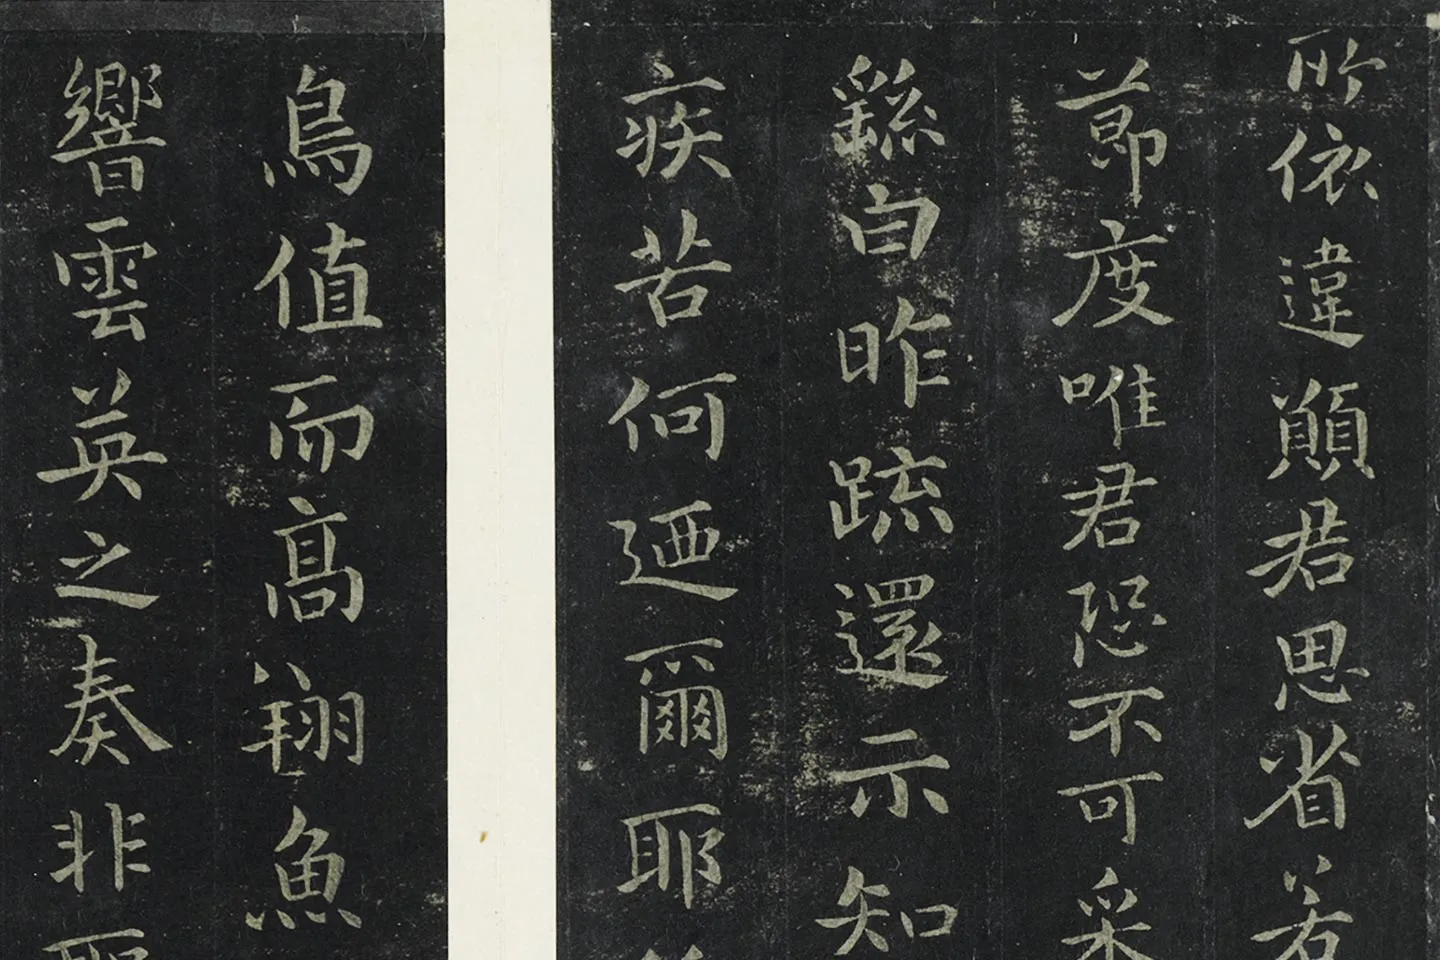 所依違願君思省若
莭度唯君恐不可采
繇白昨疏還示知
疾苦何迺爾耶
鳥値而高翔魚
響雲英之奏非